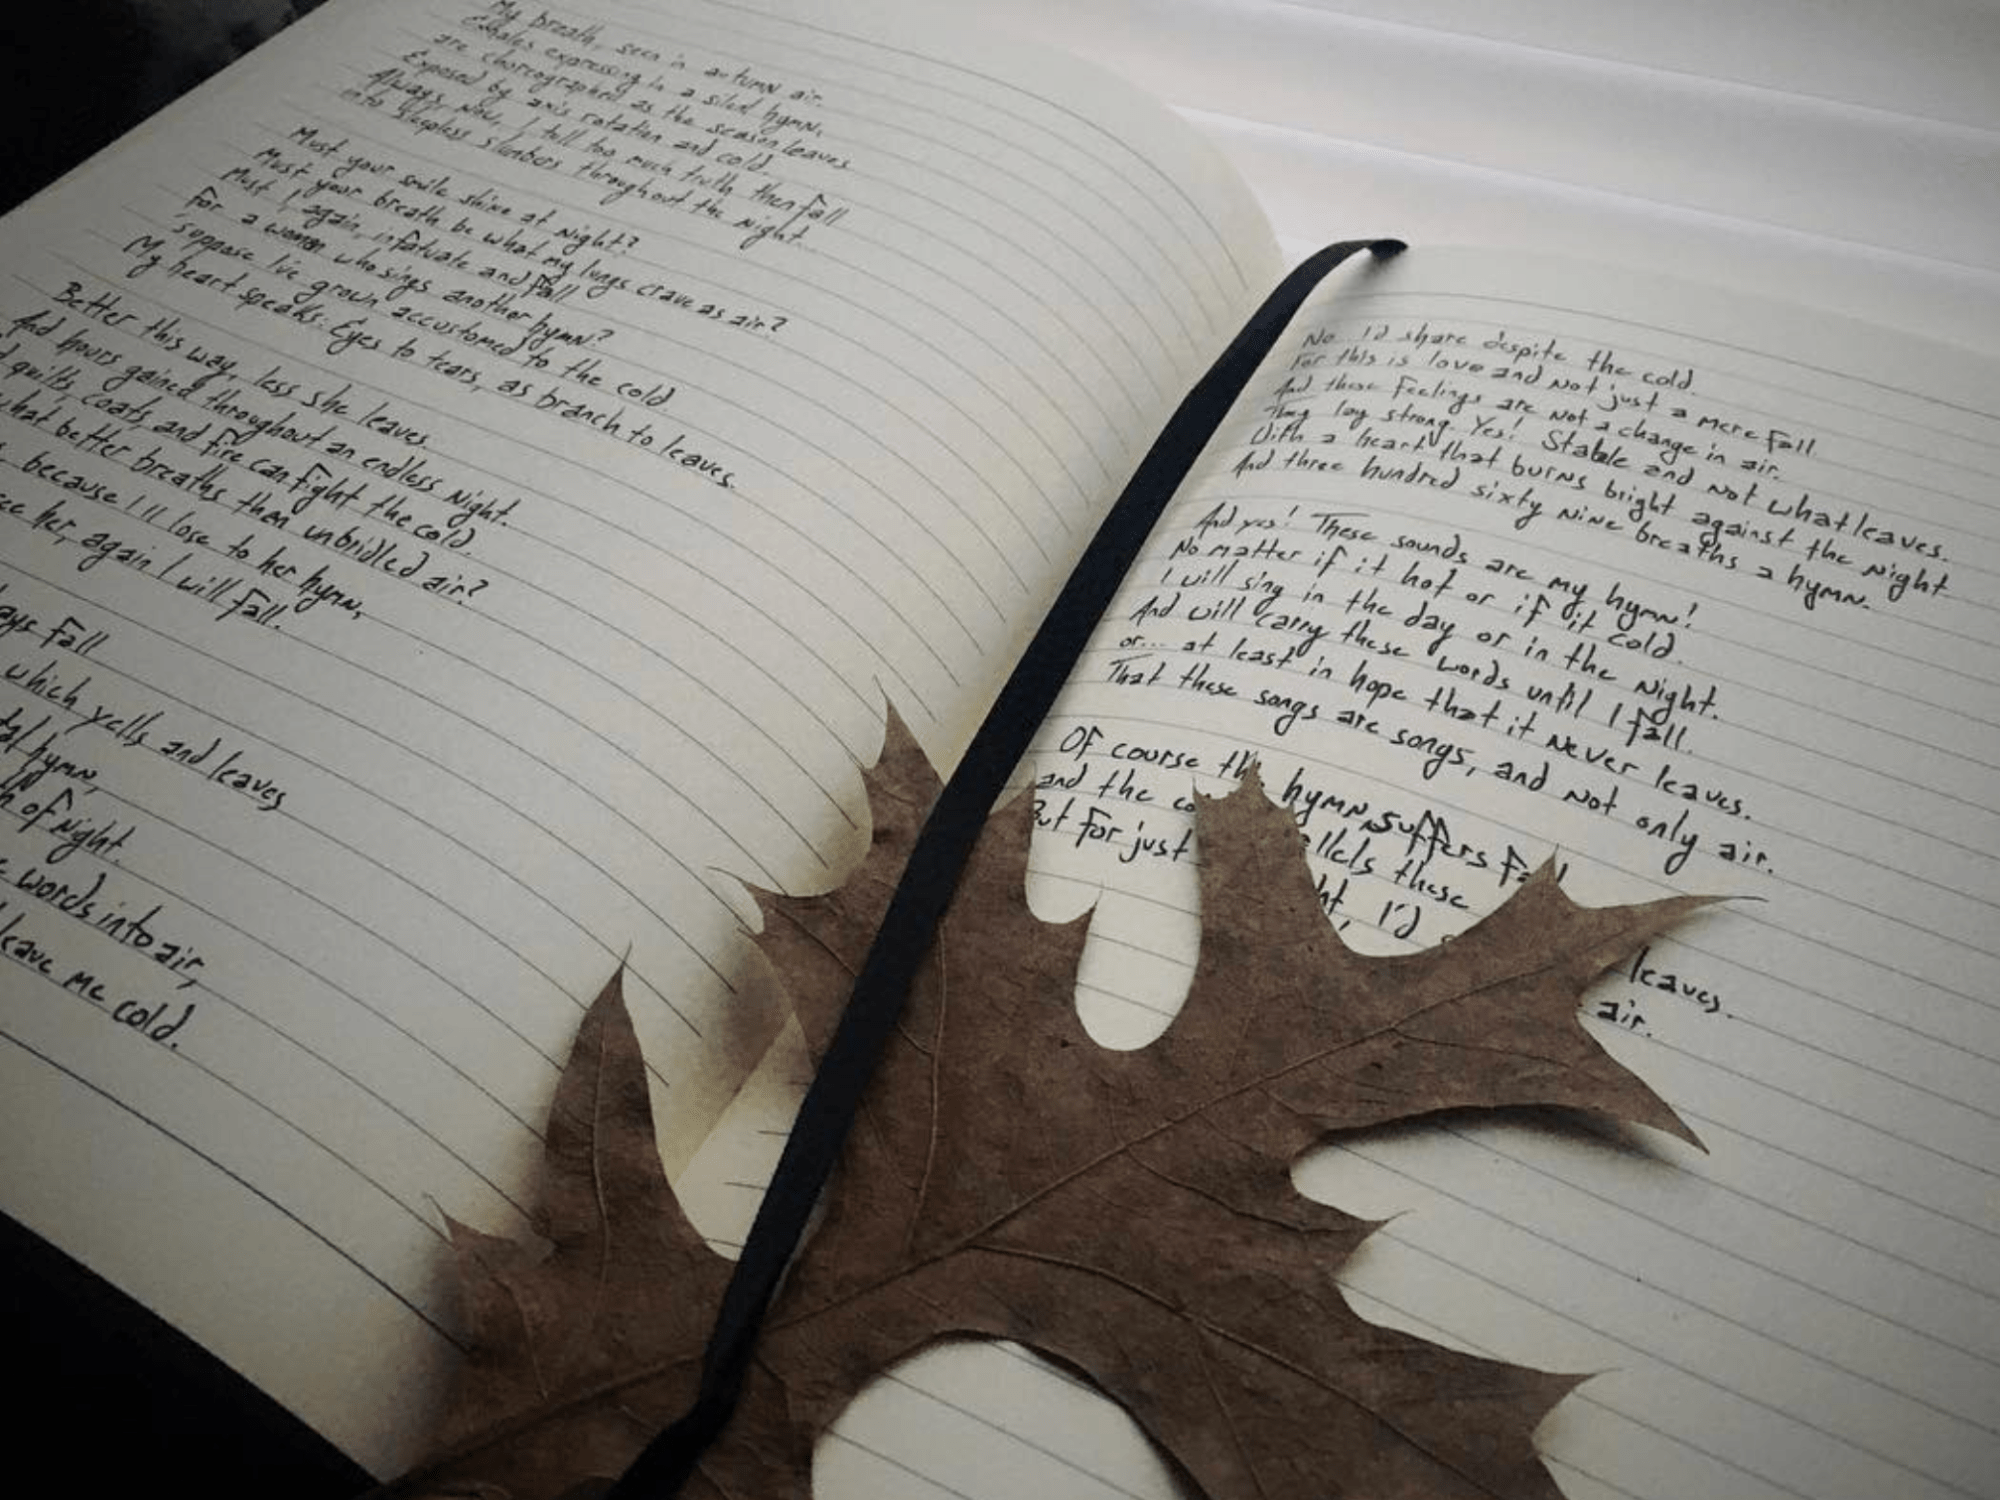 My breath, seen in autumn air.
Exhales expressing in a silent hymn,
are choreographed as the season leaves
Exposed by axis rotation and cold.
Always, Now, I tell too much truth, then fall
into sleepless slumbers throughout the night...
Must your smile shine at night?
Must your breath be what my lungs crave as air?
Must I, again, infatuate and fall
For a woman who sings another hymn?
Suppose I've grown accustomed to the cold.
My heart speaks: Eyes to tears, as branch to leaves.
Better this way, less she leaves.
And hours gained throughout an endless night.
quilts, coats, and fire can fight the cold.
what better breaths then unbridled air?
because I'll lose to her hymn,
her, again I will fall.
Fall
which yells and leaves
hymn,
of night.
words into air,
leave me cold.
No. I'd share despite the cold.
For this is love and not just a mere fall
And these feelings are not a change in air.
They lay strong. Yes! Stable and not what leaves.
With a heart that burns bright against the night
And three hundred sixty nine breaths a hymn.
And yes! These sounds are my hymn!
No matter if it hot or if it cold.
I will sing in the day or in the night.
And will carry these words until I fall.
or... at least in hope that it never leaves.
That these songs are songs, and not only air.
Of course the hymn suffers
and the these
But for just I'd
leaves.
air.